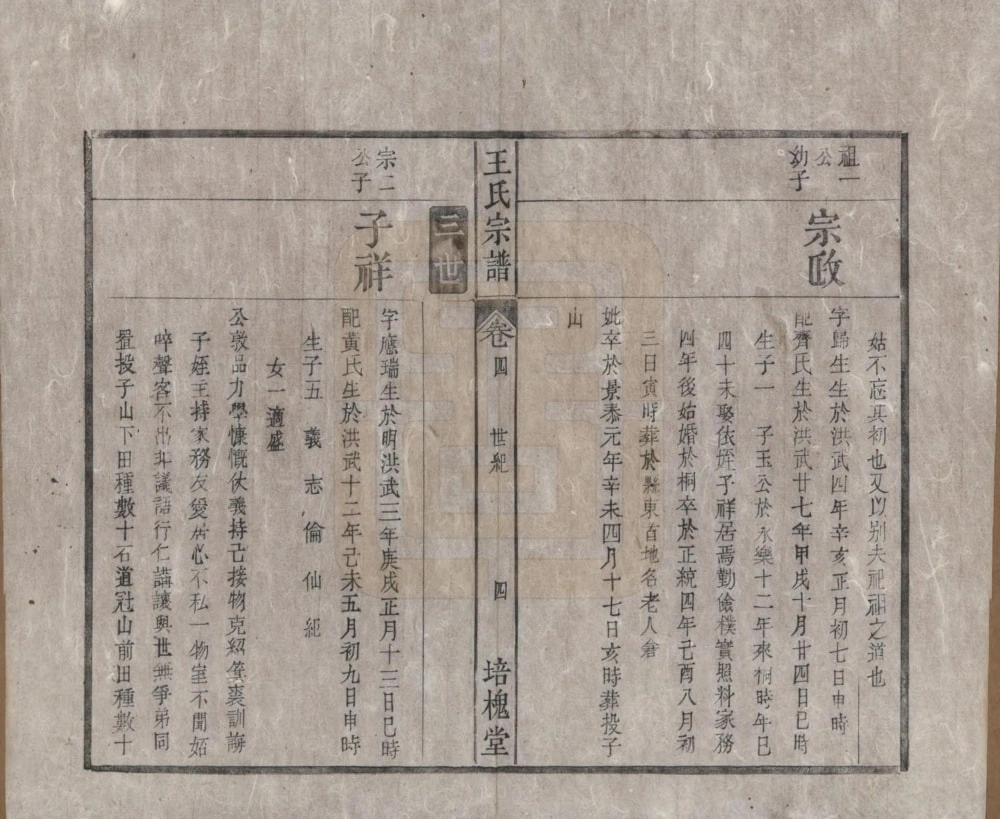 祖一
公
幼子
宗政
姑不忘其初也又以别夫祀祖之道也
字歸生生於洪武四年辛亥正月初七日申時
配齊氏生於洪武廿七年甲戌十月廿四日巳時
生子一 子玉公於永樂十二年來桐時年已
四十未娶依姪子祥居焉勤儉樸實照料家務
四年後始婚於桐卒於正統四年己酉八月初
三日寅時葬於縣東百地名老人倉
妣卒於景泰元年辛未四月十七日亥時葬投子
山
王氏宗譜
卷四 世紀 四
培槐堂
三世
宗二
公子
子祥
字應瑞生於明洪武三年庚戌正月十三日巳時
配黃氏生於洪武十二年己未五月初九日申時
生子五 義 志 倫 仙 紀
女一適盛
公敦品力學慷慨仗義持己接物克紹箕裘訓誨
子姪主持家務友愛居心不私一物室不聞姤
啐聲客不出非議語行仁講讓與世無爭弟同
置投子山下田種數十石道冠山前田種數十